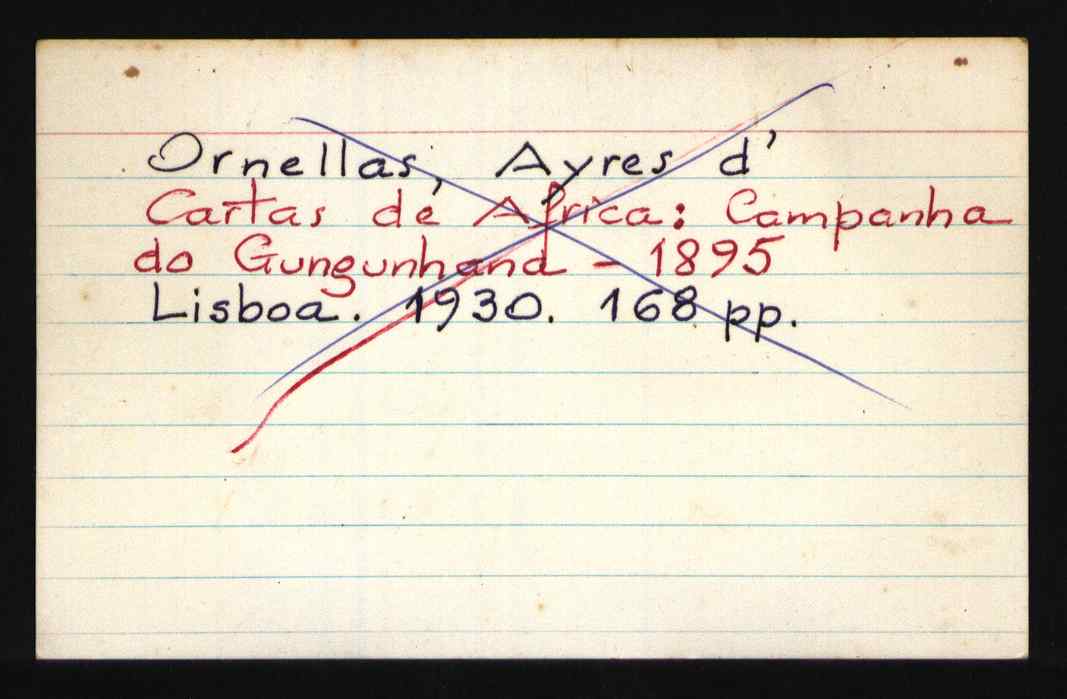 Ornellas, Ayres d'
Cartas de Africa: Campanha
do Gungunhana - 1895
Lisboa. 1930. 168 pp.